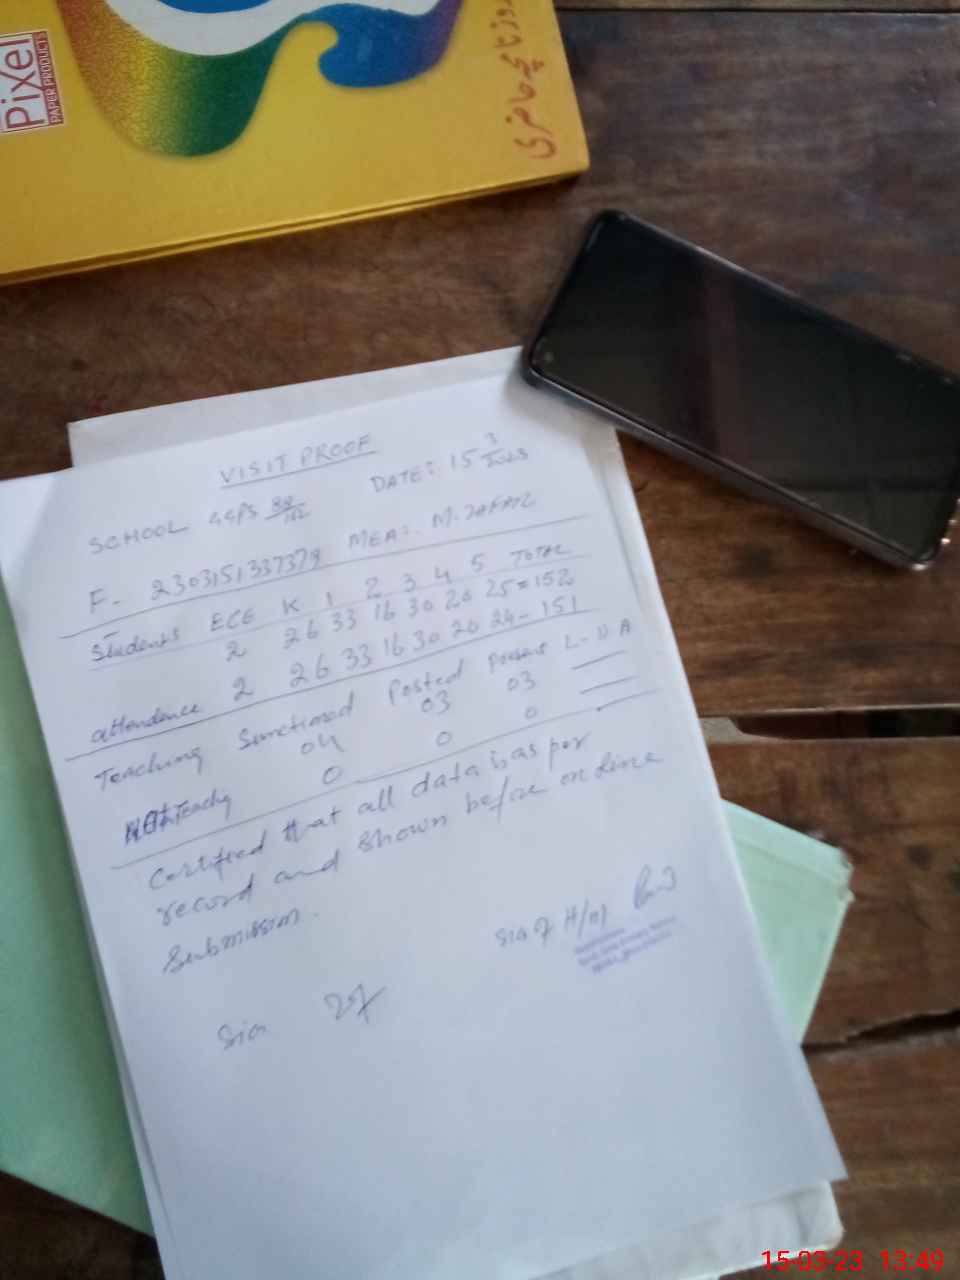 PiXel
PAPER PRODUCTS
روزنامچہ حاضری
VISIT PROOF
SCHOOL GGPS DATE:- 15 3/2023
F- 230315133737 MEA:- M. ZAFAR
Students ECE K 1 2 3 4 5 TOTAL
2 26 33 16 30 20 25 = 152
attendence 2 26 33 16 30 20 24 - 151
Teaching Sanctioned Posted Present L-
04 03 03
Teachg 0 0 0
Certified that all data is as per
record and shown before on line
Submission.
Sig of H/m
Sig
15-03-23 13:49